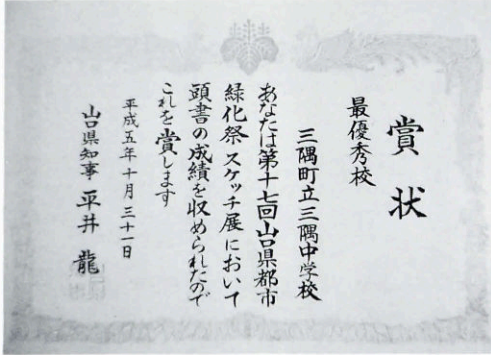 賞状
最優秀校
三隅町立三隅中学校
あなたは第十七回山口県都市
緑化祭スケッチ展において
頭書の成績を収められたので
これを賞します
平成五年十月三十一日
山口県知事 平井龍